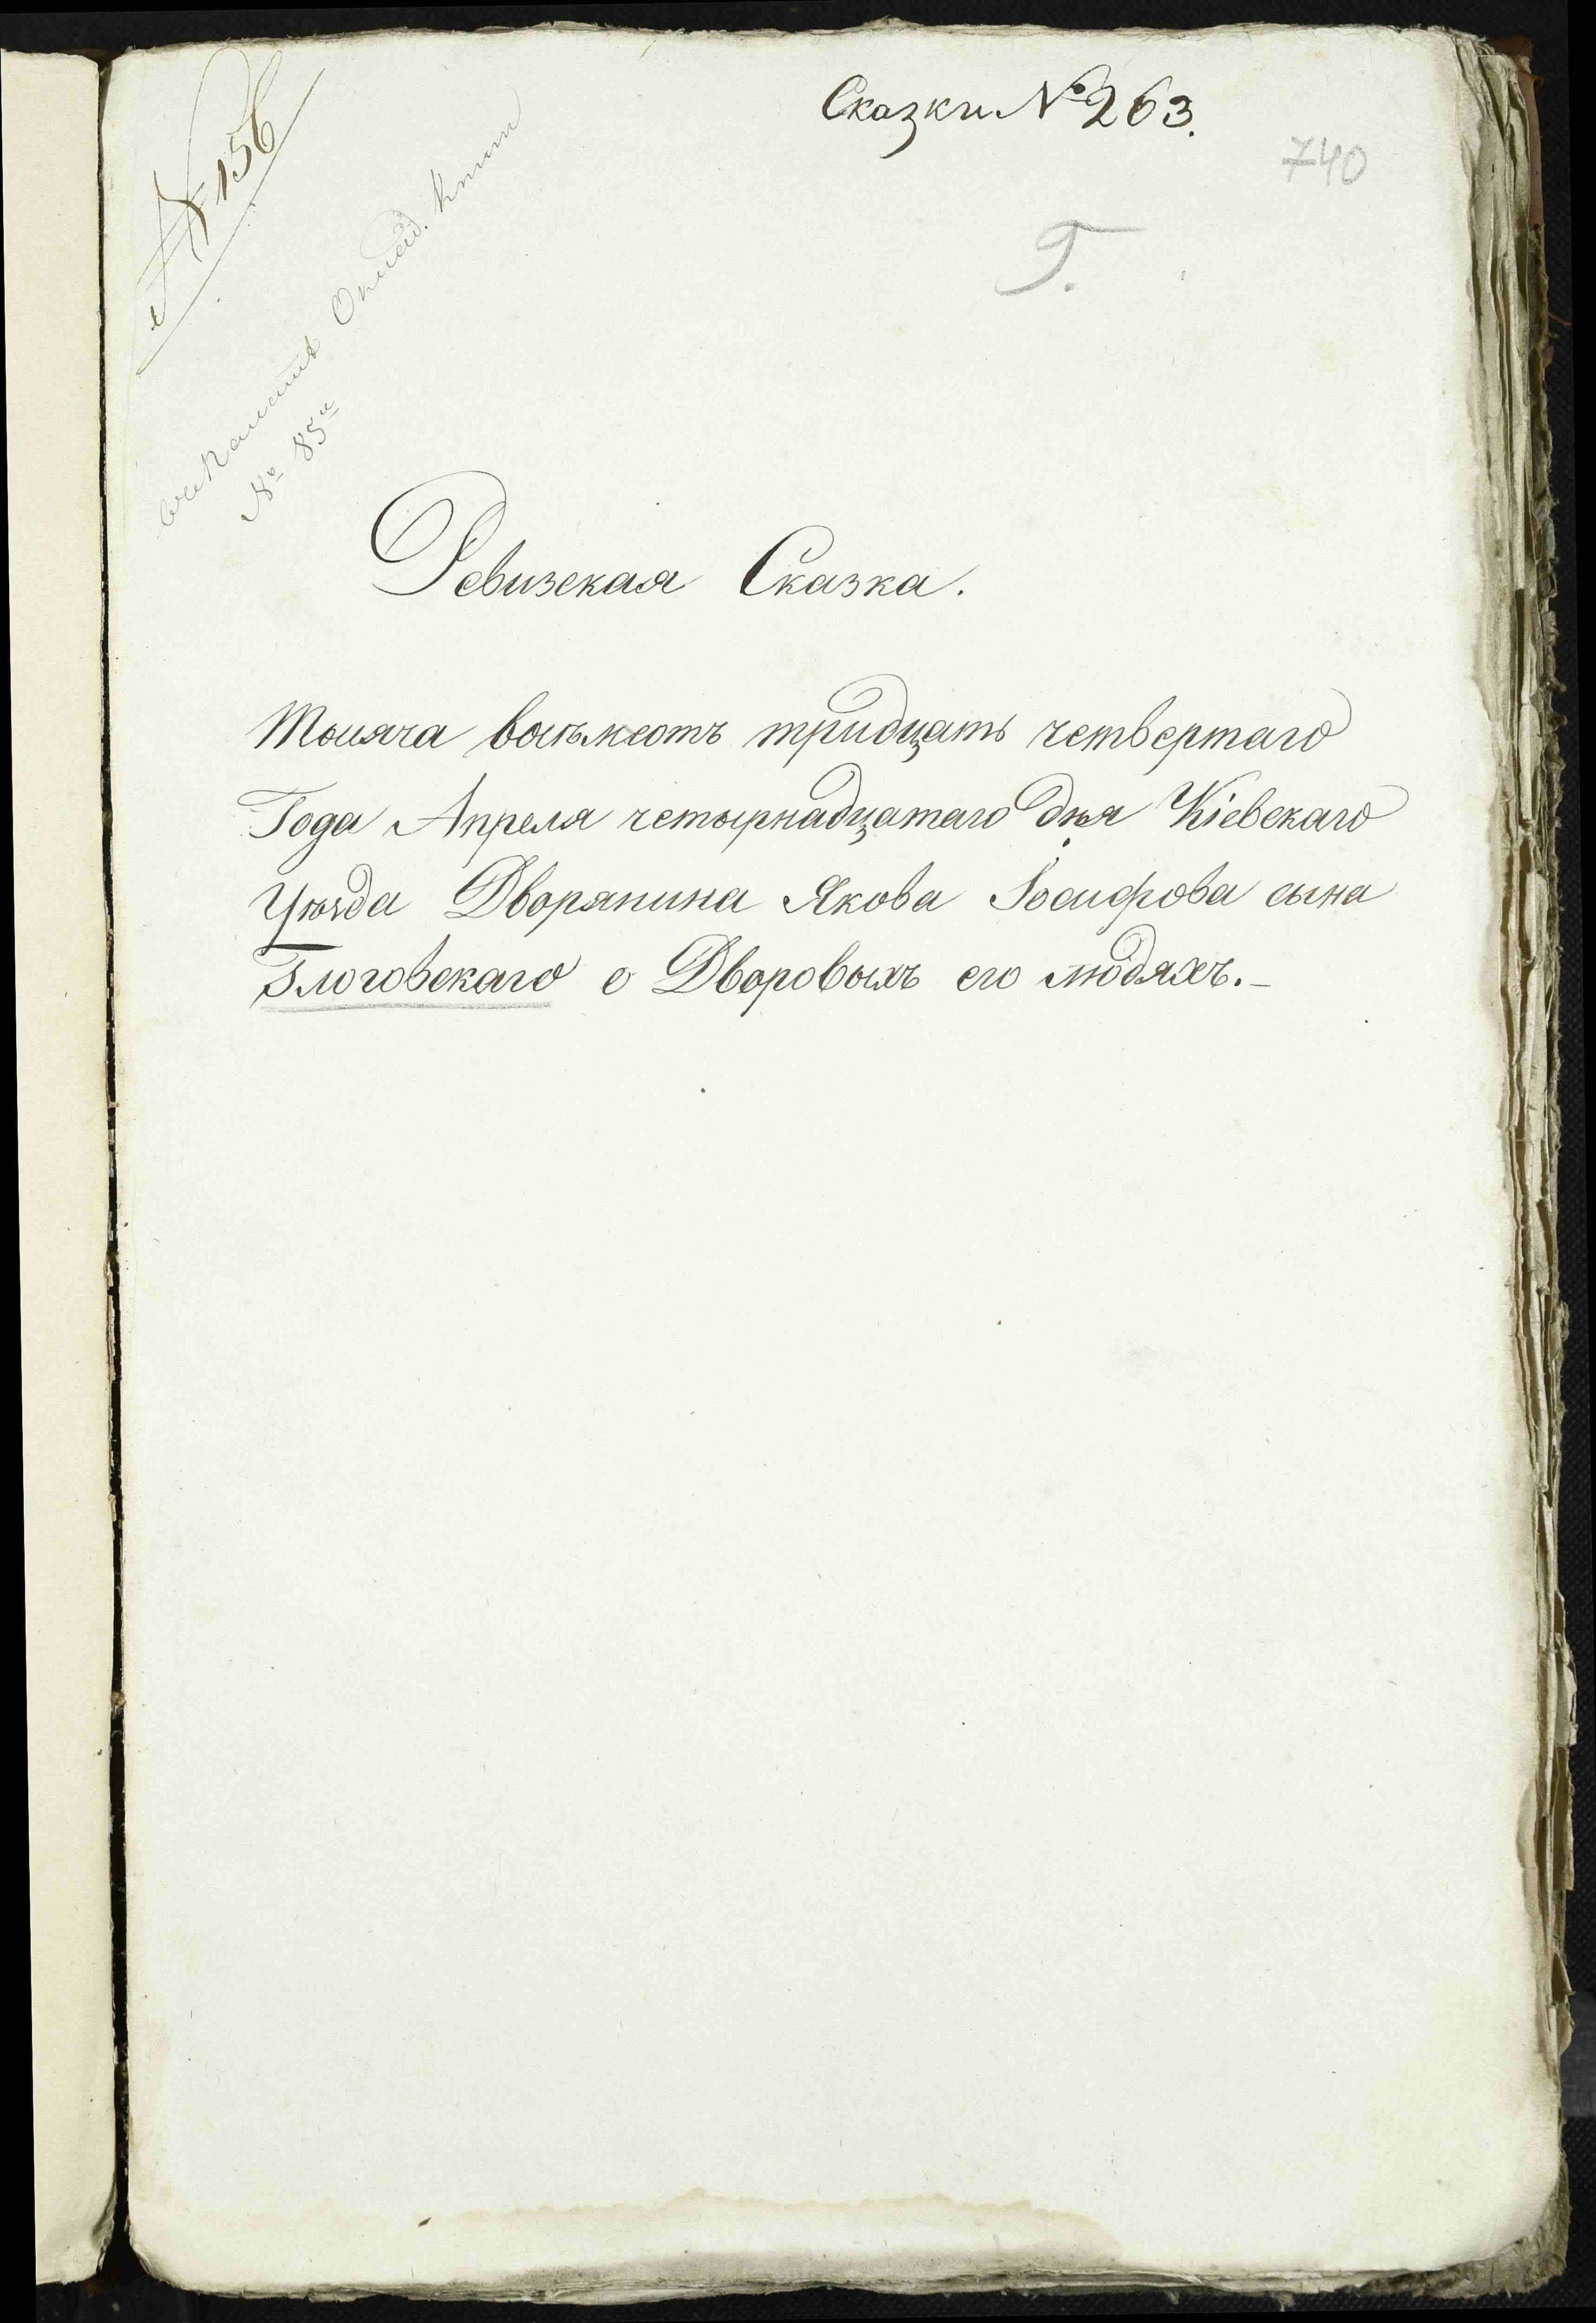 Сказки №263.
740
№ 156
Г.
№ 85й
Ревизская Сказка.
Тысяча восѣмсотъ тридцать четвертаго
Года Апреля четырнадцатаго дня Кіевскаго
Уѣзда Дворянина Якова Іосифова сына
Глоговскаго о Дворовыхъ его людяхъ.-